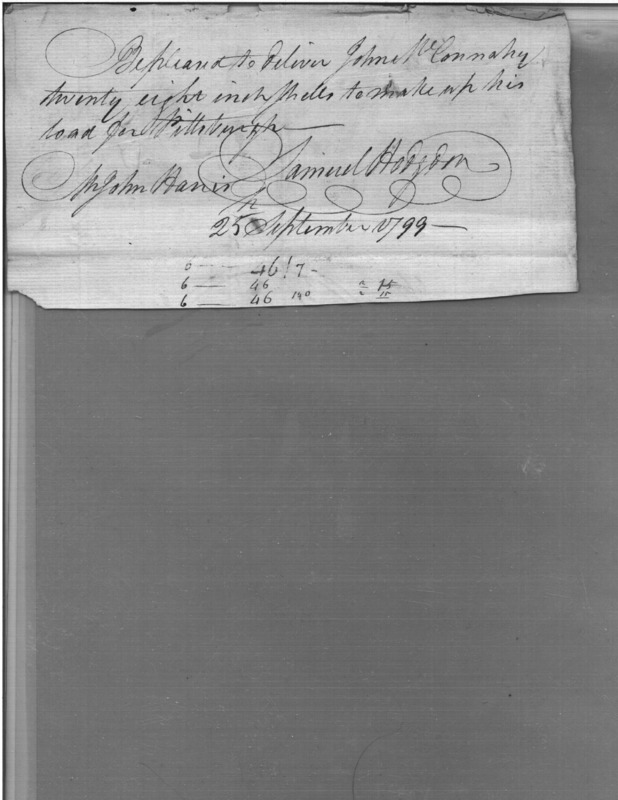 Be pleased to deliver John McConnahy
twenty eight inch shells to make up his
load for Pittsburgh
Samuel Hodgdon
Mr John Harris
25 September 1793
6 — 46 7
6 — 46
6 — 46 180